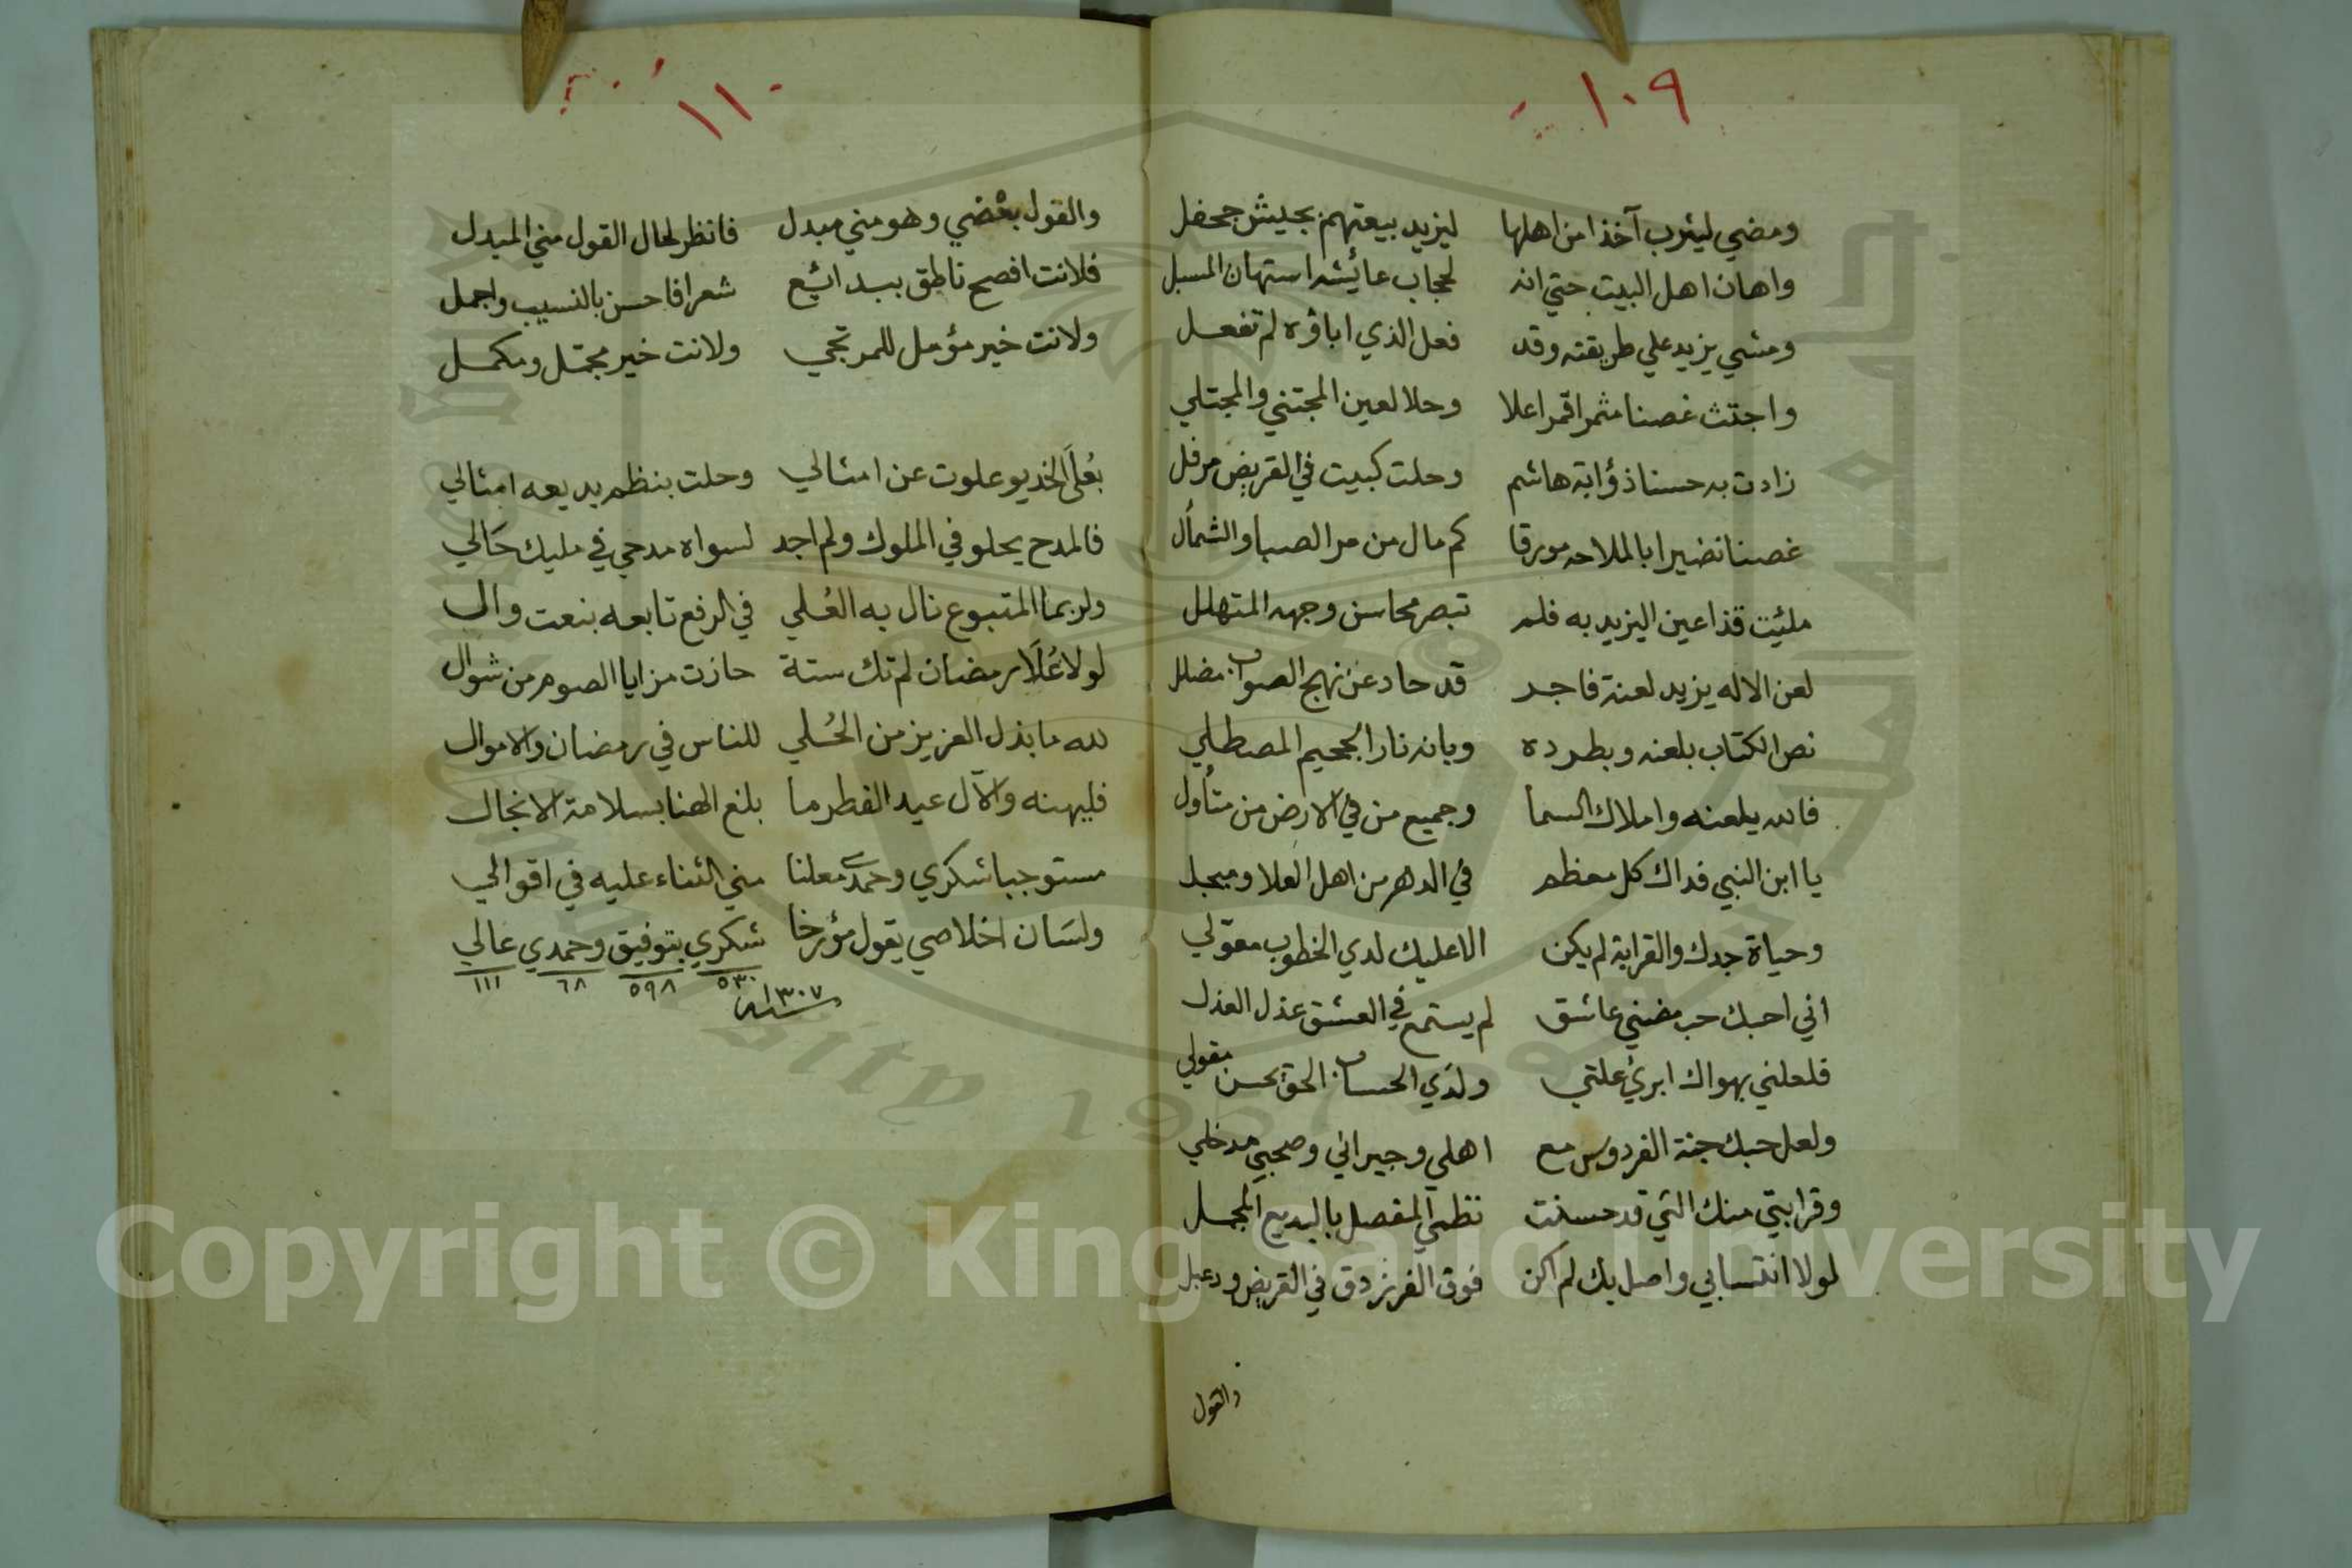 ١٠٩
ومضي ليثرب آخذا من اهلها ليزيد بيعتهم بجيش جحفل
واهان اهل البيت حتي انه لحجاب عائيشه استهان المسبل
ومشي يزيد علي طريقته وقد فعل الذي اباؤه لم تفعل
واجتث غصنا مثمرا قمرا علا وحلا لعين المجتني والمجتلي
زادت به حسنا ذؤابة هاشم وحلت كبيت في القريض مرفل
غصنا نضيرا بالملاحه مورقا كم مال من مر الصبا والشمأل
ملئيت قذا عين اليزيد به فلم تبصر محاسن وجهه المتهلل
لعن الاله يزيد لعنة فاجر قد حاد عن نهج الصواب مضلل
نص الكتاب بلعنه وبطرده وبانه نار الجحيم المصطلي
فالله يلعنه واملاك السما وجميع من في الارض من متأول
يا ابن النبي فداك كل معظم في الدهر من اهل العلا ومبجل
وحياة جدك والقرابة لم يكن الا عليك لدي الخطوب معولي
اني احبك حب مضني عاشق لم يستمع في العشق عذل العذل
فلعلني بهواك ابرئ علتي ولدي الحساب الحق يحسن مقولي
ولعل حبك جنة الفردوس مع اهلي وجيراني وصحبي مدخلي
وقرابتي منك التي قد حسنت نظمي المفصل بالبديع المجمل
لولا انتسابي واصل بك لم اكن فوق الفرزدق في القريض ودعبل
والقول
١١٠
والقول بعضي وهو مني مبدل فانظر لحال القول مني المبدل
فلانت افصح ناطق ببدائيع شعرا فاحسن بالنسيب واجمل
ولانت خير مؤمل للمرتجي ولانت خير مجمل ومكمل
بعُلَى الخديو علوت عن امثالي وحلت بنظم بديعه امثالي
فالمدح يحلو في الملوك ولم اجد لسواه مدحي في مليك حَالي
ولربما المتبوع نال به العُلي في الرفع تابعه بنعت وال
لولا عُلَا رمضان لم تك ستة حازت مزايا الصوم من شوال
لله ما بذل العزيز من الحُلي للناس في رمضان والاموال
فليهنه والآل عيد الفطر ما بلغ الهنا بسلامة الانجال
مستوجبا شكري وحمدي معلنا مني الثناء عليه في اقوالي
ولسَان اخلاصي يقول مؤرخا شكري بتوفيق وحمدي عالي
٥٣٠ ٥٩٨ ٦٨ ١١١
سنه ١٣٠٧
Copyright © King Saud University